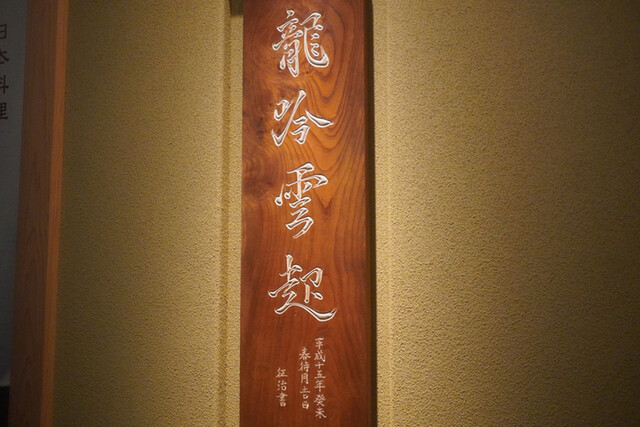 龍吟雲起
平成十五年癸未
春待月吉日
征治書
日本料理